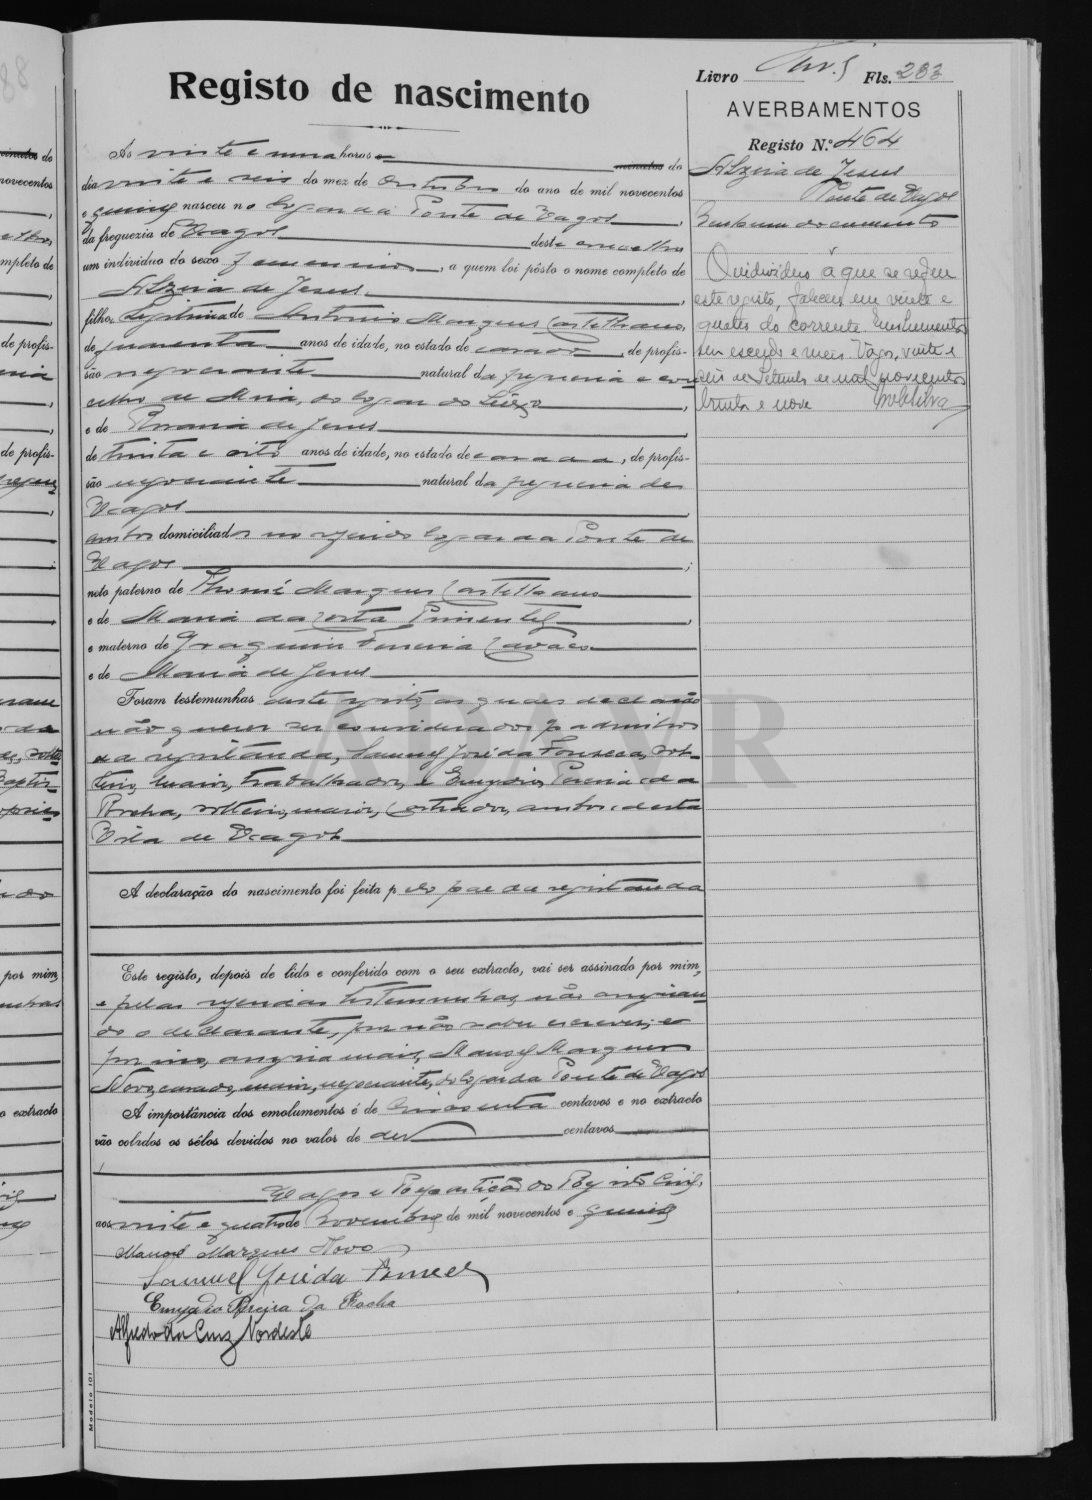 Livro Fls. 233
Registo de nascimento
AVERBAMENTOS
Registo N.º 464
Alzira de Jesus
Ponte de Vagos
Nenhum documento
O individuo a que se refere
este registo, faleceu em vinte e
quatro do corrente. Emolumentos
um escudo e meio. Vagos, vinte e
seis de Setembro de mil novecentos
trinta e nove
Ás vinte e uma horas e minutos do
dia vinte e seis do mez de Outubro do ano de mil novecentos
e quinze nasceu no logar da Ponte de Vagos,
da freguezia de Vagos deste concelho
um individuo do sexo femenino, a quem foi pôsto o nome completo de
Alzira de Jesus,
filha legitima de Antonio Marques Castelhano,
de quarenta anos de idade, no estado de casado, de profis-
são negociante natural da freguezia e con
celho de Mira, do logar do Seixo,
e de Rosaria de Jesus
de trinta e oito anos de idade, no estado de casada, de profis-
são negociante natural da freguezia de
Vagos
ambos domiciliados no referido logar da Ponte de
Vagos;
neto paterno de Thomé Marques Castelhano
e de Maria da Costa Pimentel,
e materno de Joaquim Ferreira
e de Maria de Jesus
Foram testemunhas deste registo, as quaes declarão
não querer ser considerados padrinhos
da registanda, Samuel José da Fonseca, sol-
teiro, maior, trabalhador, e Emygdio Pereira da
Rocha, solteiro, maior, ambos desta
Vila de Vagos
A declaração do nascimento foi feita pelo pae da registanda
Este registo, depois de lido e conferido com o seu extracto, vai ser assinado por mim,
e pelas referidas testemunhas, não assignan
do o declarante, por não saber escrever; e
por isso, assigna mais, Manoel Marques
Novo, casado, maior, negociante, do logar da Ponte de Vagos
A importância dos emolumentos é de cincoenta centavos e no extracto
vão colados os sêlos devidos no valor de dez centavos
Vagos e Repartição do Registo Civil,
aos vinte e quatro de Novembro de mil novecentos e quinze
Manoel Marques Novo
Samuel José da Fonseca
Emygdio Pereira da Rocha
Alfredo da Cruz Nordeste
Modelo 101
ADAVR